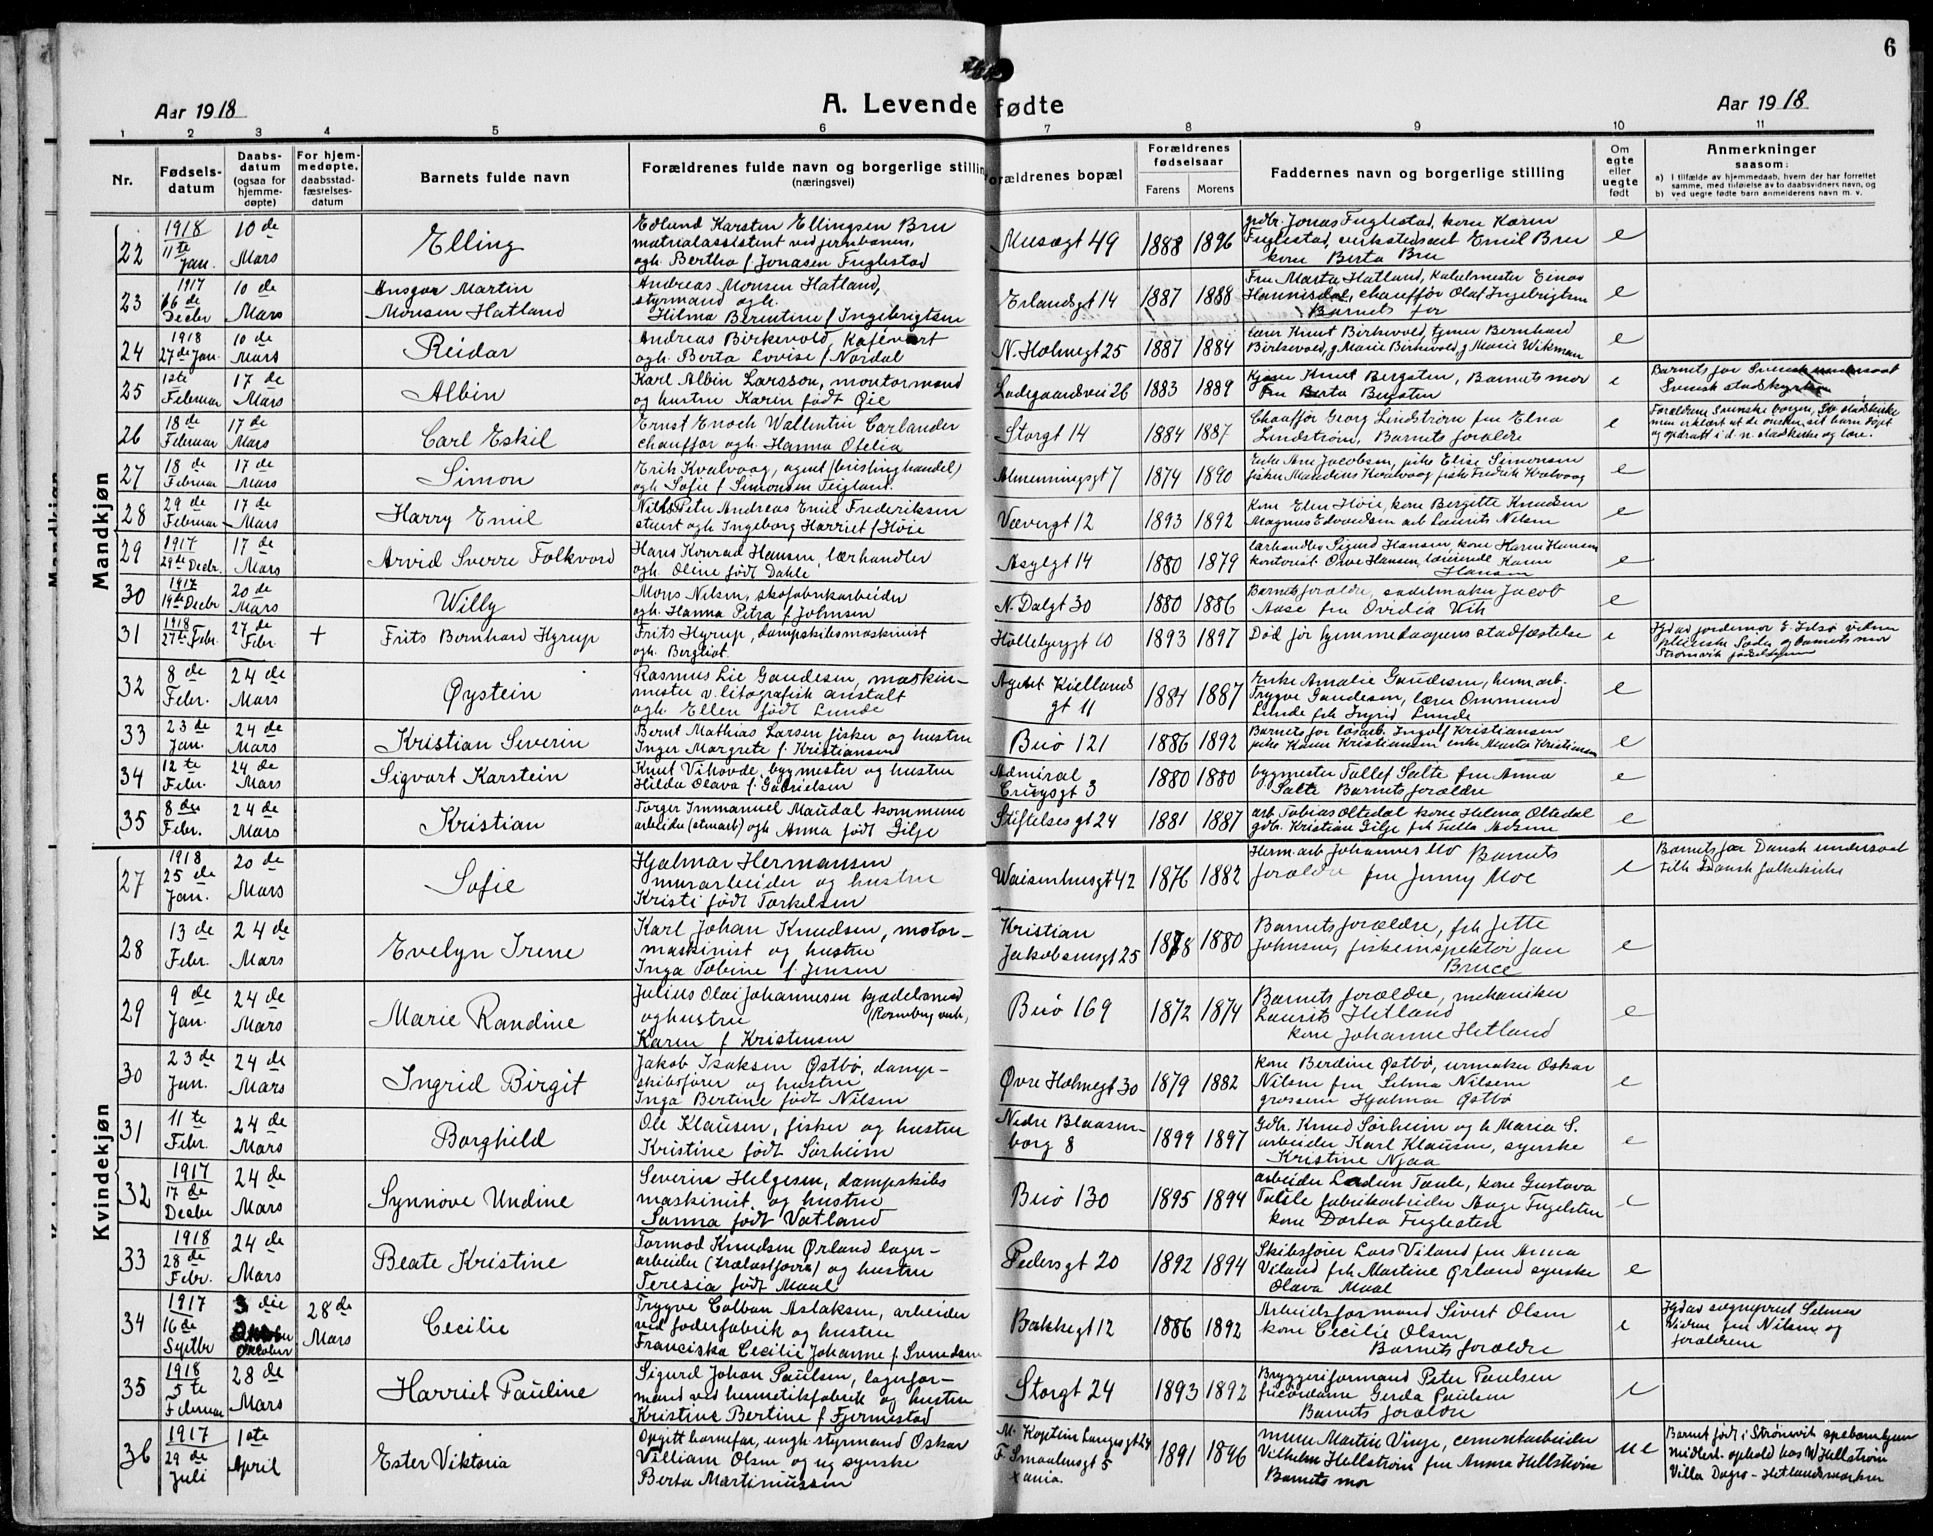 6
Aar 1918
A. Levende fødte
Aar 1918
1 2 3 4 5 6 7 8 9 10 11
Nr.
Fødsels-
datum
Daabs-
datum
(ogsaa for
hjemme-
døpte)
For hjem-
medøpte,
daabsstad-
fæstelses-
datum
Barnets fulde navn
Forældrenes fulde navn og borgerlige stilling
(næringsvei)
Forældrenes bopæl
Forældrenes
fødselsaar
Farens Morens
Faddernes navn og borgerlige stilling
Om
egte
eller
uegte
født
Anmerkninger
saasom:
a) I tilfælde av hjemmedaab, hvem der har forrettet
samme, med tilføielse av to daabsvidners navn, og
b) ved uegte fødte barn anmelderens navn m. v.
Mandkjøn
22 1918 11te Jan. 10de Mars Elling
Edlund Karsten Ellingsen Bru
matrialassistent ved jernbanen,
ogh. Bertha f. Jonasen Fuglestad
Musægt 49 1888 1896
gdbr. Jonas Fuglestad, kone Karen
Fuglestad, verkstedsarb Emil Bru
kone Berta Bru
e
23 1917 16de Decbr 10de Mars Ansgar Martin
Monsen Hatland
Andreas Monsen Hatland,
styrmand ogh.
Hilma Berentine f Ingebrigtsen
Erlandsgt 14 1887 1888
Fru Marta Hatland, Kabelmester Einar
Hannisdal, chauffør Olaf Ingebrigtsen
Barnets far
e
24 1918 27de Jan. 10de Mars Reidar
Andreas Birkevold, Kafévært
ogh. Berta Lovise f Nordal
N. Holmegt 25 1887 1884
lærer Knut Birkevold, tjener Bernhard
Birkevold, g Marie Birkevold, g Marie Wikman
e
25 1ste Februar 17de Mars Albin
Karl Albin Larsson, montørmand
og hustru Karin født Øie
Ladegaardsvei 26 1883 1889
Knut Bergsten, Barnets mor
Fru Berta Bergsten
e
Barnets far Svensk undersaat
Svensk statskyrkan
26 18de Februar 17de Mars Carl Eskil
Ernst Enoch Wallentin Carlander
chauffør ogh. Hanna Ofelia
Storgt 14 1884 1887
Chauffør Georg Lindstrøm fru Elna
Lindstrøm, Barnets forældre
e
Forældrene Svenske borgere,
men erklært at de ønsker sit barn døpt
og opdratt i d. n. statskirke og lære.
27 18de Februar 17de Mars Simon
Erik Kvalvaag, agent (brislinghandel)
ogh. Sofie f Simonsen Teigland.
Almenningsgt 7 1874 1890
Enke Ane Jacobsen, pike Elise Simonsen
fisker Maudius Kvalvaag fisker Fredrik Kvalvaag
e
28 29de Februar 17de Mars Harry Emil
Nils Peter Andreas Emil Frederiksen
stuert ogh Ingeborg Harriet f Høie
Vævergt 12 1893 1892
Kone Elen Høie, kone Bergitte Knudsen
Magnus Edvardsen arb Laurits Nilsen
e
29 1917 29de Decbr. 17de Mars Arvid Sverre Folkvord
Hans Konrad Hansen, lærhandler
ogh. Oline født Dahle
Asylgt 14 1880 1879
lærhandler Sigurd Hansen, kone Karen Hansen
kontorist Orve Hansen, lærerinde Karen
Hansen
e
30 1917 19de Decbr 20de Mars Willy
Mons Nilsen, skofabrikarbeider
ogh. Hanna Petra f Johnsen
N. Dalgt 30 1880 1886
Barnets forældre, sadelmaker Jacob
Aase fru Ovidia Vik
e
31 1918 27de Febr. 27de Febr + Frits Bernhard Hyrup
Frits Hyrup, dampskibsmaskinist
ogh. Bergliot
Hollebergt 10 1893 1897
Død før hjemmedaapens stadfæstelse
e
32 8de Febr. 24de Mars Øystein
Rasmus Lie Gaudesen, maskin-
mester v. litografisk anstalt
ogh. Ellen født Lunde
Kiellands
gt 11 1884 1887
Enke Amalie Gaudesen, herm.arb.
Trygve Gaudesen, lærer Ommund
Lunde frk Ingrid Lunde
e
33 23de Jan. 24de Mars Kristian Severin
Bernt Mathias Larsen fisker og hustru
Inger Margrete f. Kristiansen
Buø 121 1886 1892
Barnets far løsarb. Ingolf Kristiansen
pike Karen Kristiansen enke Marta Kristiansen
e
34 12te Febr. 24de Mars Sigvart Karstein
Knut Vihovde, bygmester og hustru
Hilda Olava f. Gabrielsen
Admiral
Cruysgt 3 1880 1880
bygmester Tollef Salte fru Anna
Salte Barnets forældre
e
35 8de Febr. 24de Mars Kristian
Torger Immanuel Maudal kommune
arbeider ogh Anna født Gilje
Stiftelsesgt 24 1881 1887
arb Tobias Oltedal kone Helena Oltedal
gdbr. Kristian Gilje
e
Kvindekjøn
27 1918 25de Jan. 20de Mars Sofie
Hjalmar Hermansen
murarbeider og hustru
Kristi født Torkelsen
Waisenhusgt 42 1876 1882
Herm.arb Johannes Moe Barnets
forældre fru Jenny Moe
e
Barnets far Dansk undersaat
tilh Dansk folkekirke
28 13de Febr. 24de Mars Evelyn Irene
Karl Johan Knudsen, motor-
maskinist og hustru
Inga Tobine f. Jensen
Kristian
Jakobsensgt 25 1878 1880
Barnets forældre, frk Jette
Johnsen, fiskeinspektør Jan
Bruce
e
29 9de Jan. 24de Mars Marie Randine
Julius Olai Johannesen kjædelsmed
og hustru (Rosenberg verk,)
Karen f Kristensen
Buø 169 1872 1874
Barnets forældre, mekaniker
Laurits Hetland
kone Johanne Hetland
e
30 23de Jan. 24de Mars Ingrid Birgit
Jakob Isaksen Østbø, damp-
skibsfører og hustru
Inga Bertine født Nilsen
Øvre Holmegt 30 1879 1882
kone Berdine Østbø, urmaker Oskar
Nilsen fru Selma Nilsen
grosserer Hjalmar Østbø
e
31 11te Febr. 24de Mars Borghild
Ole Klausen, fisker og hustru
Kristine født Sørheim
Nedre Blaasen-
borg 8 1899 1897
Gdbr. Knud Sørheim og h Maria S.
arbeider Karl Klausen, syerske
Kristine Njaa
e
32 1917 17de Decbr 24de Mars Synnøve Undine
Severin Helgesen, dampskibs
maskinist, og hustru
Sanna født Vatland
Buø 130 1895 1894
arbeider Taule, kone Gustava
fabrikarbeider Aage Fuglesten
kone Dortea Fuglesten
e
33 1918 28de Febr. 24de Mars Beate Kristine
Tormod Knudsen Ørland lager-
arbeider (Trælastforr.) og hustru
Teresia født Maal
Pedersgt 20 1892 1894
Skibsfører Lars Viland fru Anna
Viland frk Martine Ørland syerske
Olava Maal
e
34 1917 16de Septbr 3die Oktober 28de Mars Cecilie
Trygve Colban Aslaksen, arbeider
ved foderfabrik og hustru
Franciska Cecilie Johanne f. Svendsen
Bakkegt 12 1886 1892
Arbeidsformand Sivert Olsen
kone Cecilie Olsen
Barnets forældre
e
Hjdav sogneprest Selmer
fru Nilsen og
forældrene
35 1918 5te Februar 28de Mars Harriet Pauline
Sigurd Johan Paulsen, lagerfor-
mand ved hermetikfabrik og hustru
Kristine Bertine f Fjermestad
Storgt 24 1893 1892
Bryggeriformand Peter Paulsen
Gerda Paulsen
Barnets forældre
e
36 1917 29de Juli 1ste April Ester Viktoria
Opgitt barnefar, ungk. styrmand Oskar
William Olsen og ug syerske
Berta Martinussen
M. Kaptein Langesgt 24
F. Smaalensgt 5
Xania. 1891 1896
murer Martin Vinje, cementarbeider
Vilhelm Hellstrøm fru Anna Hellstrøm
Barnets mor
ue
Barnet født i Strømvik spebarnhjem
midlert. ophold hos W Hellstrøm
Villa Dagro - Hetlandsmarken